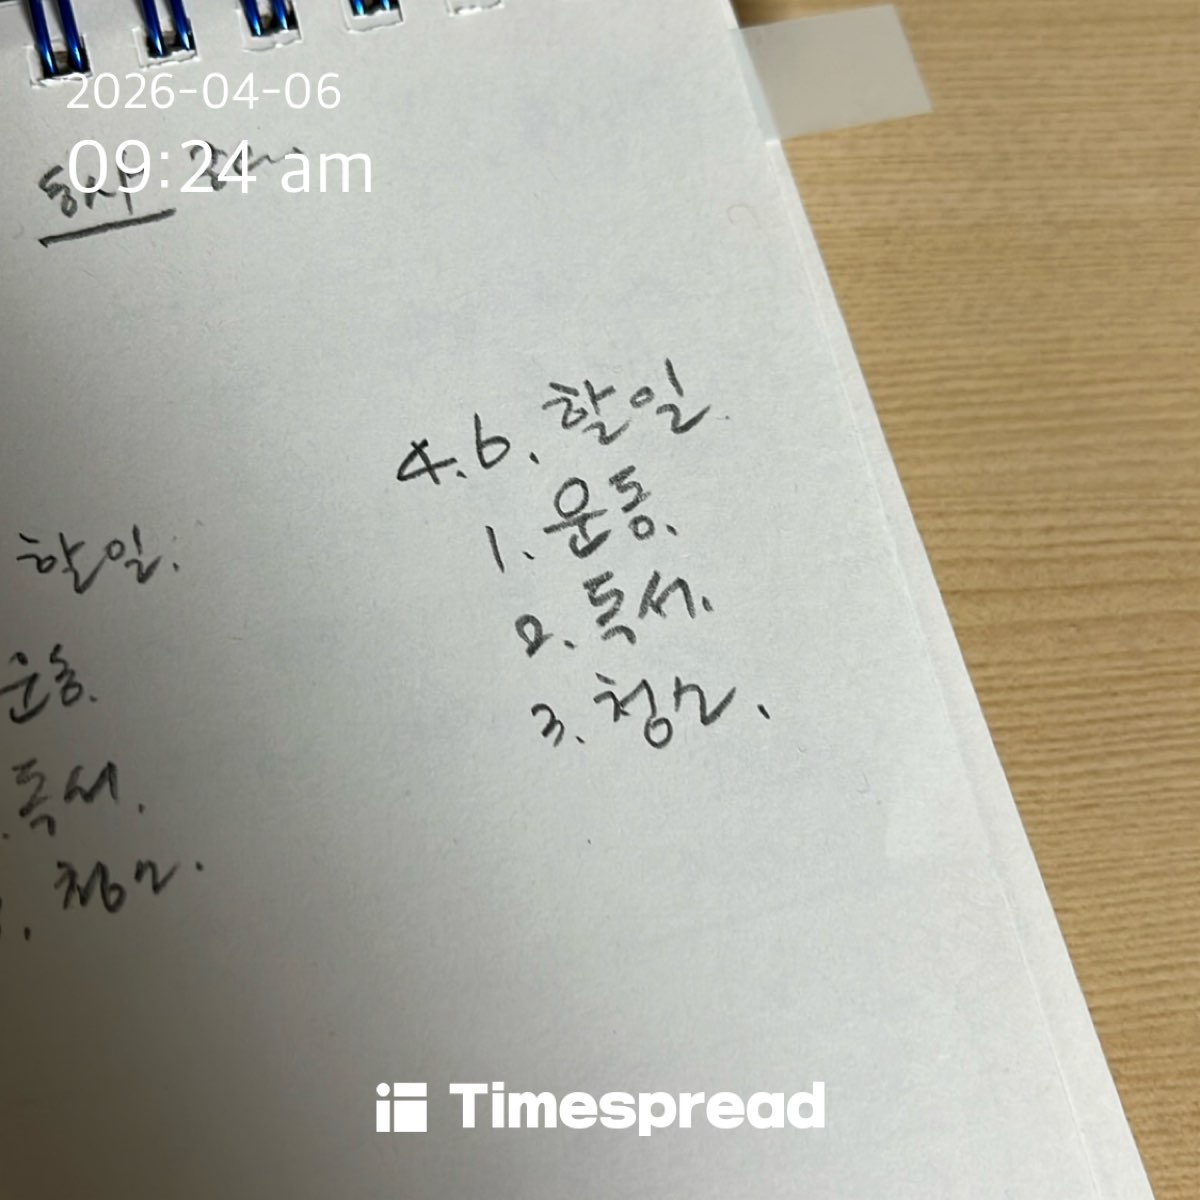 2026-04-06
09:24 am
4.6. 할일.
1. 운동.
2. 독서.
3. 청소.
할일.
운동.
독서.
청소.
Timespread